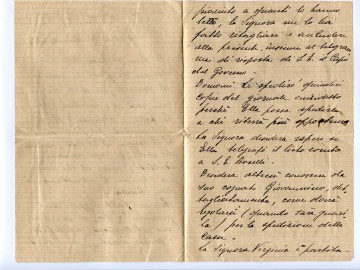 piaciuto a quanti lo hanno
letto, la Signora me lo ha
fatto ritagliare e
alla presente, insieme al telegram
ma di risposta di S. E. il Capo
del Governo.
Domani Le spedirò
copie del giornale
perchè Ella possa spedirla
a chi riterrà più opportuno
La Signora desidera sapere se
Ella telegrafò il lieto evento
a S. E. Boselli.
Desidera altresì conoscere da
suo cognato Giovannino, del
come dovrà
regolarsi (quando sarà guari
la) per la spedizione della
Cassa.
La Signora Virginia è partita